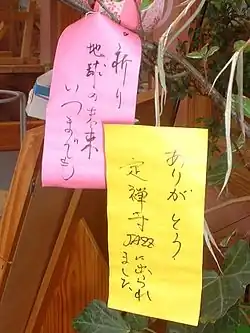 祈り
地球の未来
いつまでも
ありがとう。
定禅寺
JAZZに出られ
ました